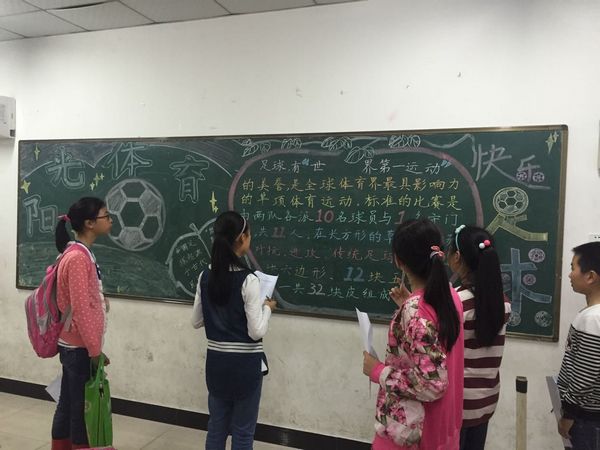 阳光体育
足球,有"世界第一运动"
的美誉,是全球体育界最具影响力
的单项体育运动,标准的比赛是
由两队各派10名球员与1名守门
共11人,在长方形的草
对抗、进攻,传统足球
六边形,12块五
一共32块皮组成
快乐
足球